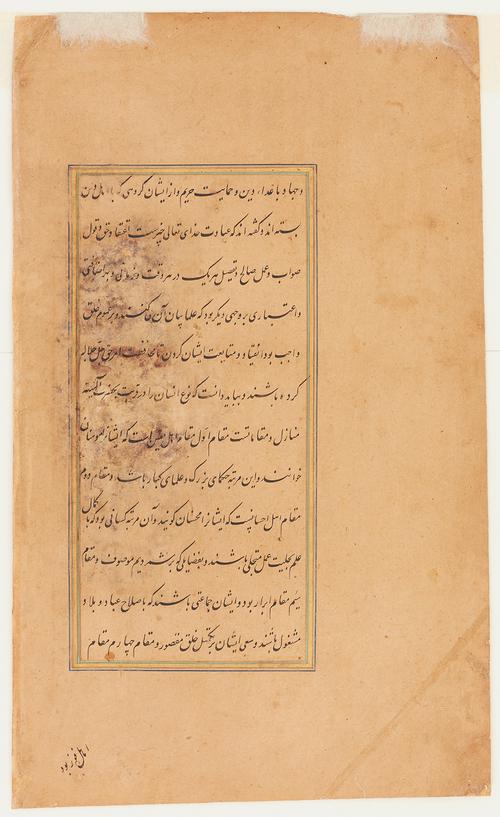 و جهاد با اعدا، دین و حمایت حریم و از ایشان کردهی که با اهل دین
بسته اند و گفته اند که عبادت خدای تعالی چیزست اعتقاد حق و قول
صواب و عمل صالح و تفصیل هر یک در هر وقت و
و اعتباری بر وجهی دیگر بود که علما بیان آن کنند و بر عموم خلق
واجب بود انقیاد و متابعت ایشان کردن تا محافظت امر حق جل جلاله
کرده باشند و بباید دانست که نوع انسان را در قربت بحضرت الهیه
منازل و مقاماتست مقام اول مقام اهل یقین است که ایشانرا موقنان
خوانند و این مرتبه حکمای بزرگ و علمای کبار باشد و مقام دوم
مقام اهل احسانست که ایشانرا محسنان گویند و آن مرتبه کسانی بود که با کمال
علم بحلیت عمل متحلی باشند و بفضایلی که بر شمردیم موصوف و مقام
سیم مقام ابرار بود و ایشان جماعتی باشند که باصلاح عباد و بلاد
مشغول باشند و سعی ایشان بر تکمیل خلق مقصور و مقام چهارم مقام
اهل فوز بود